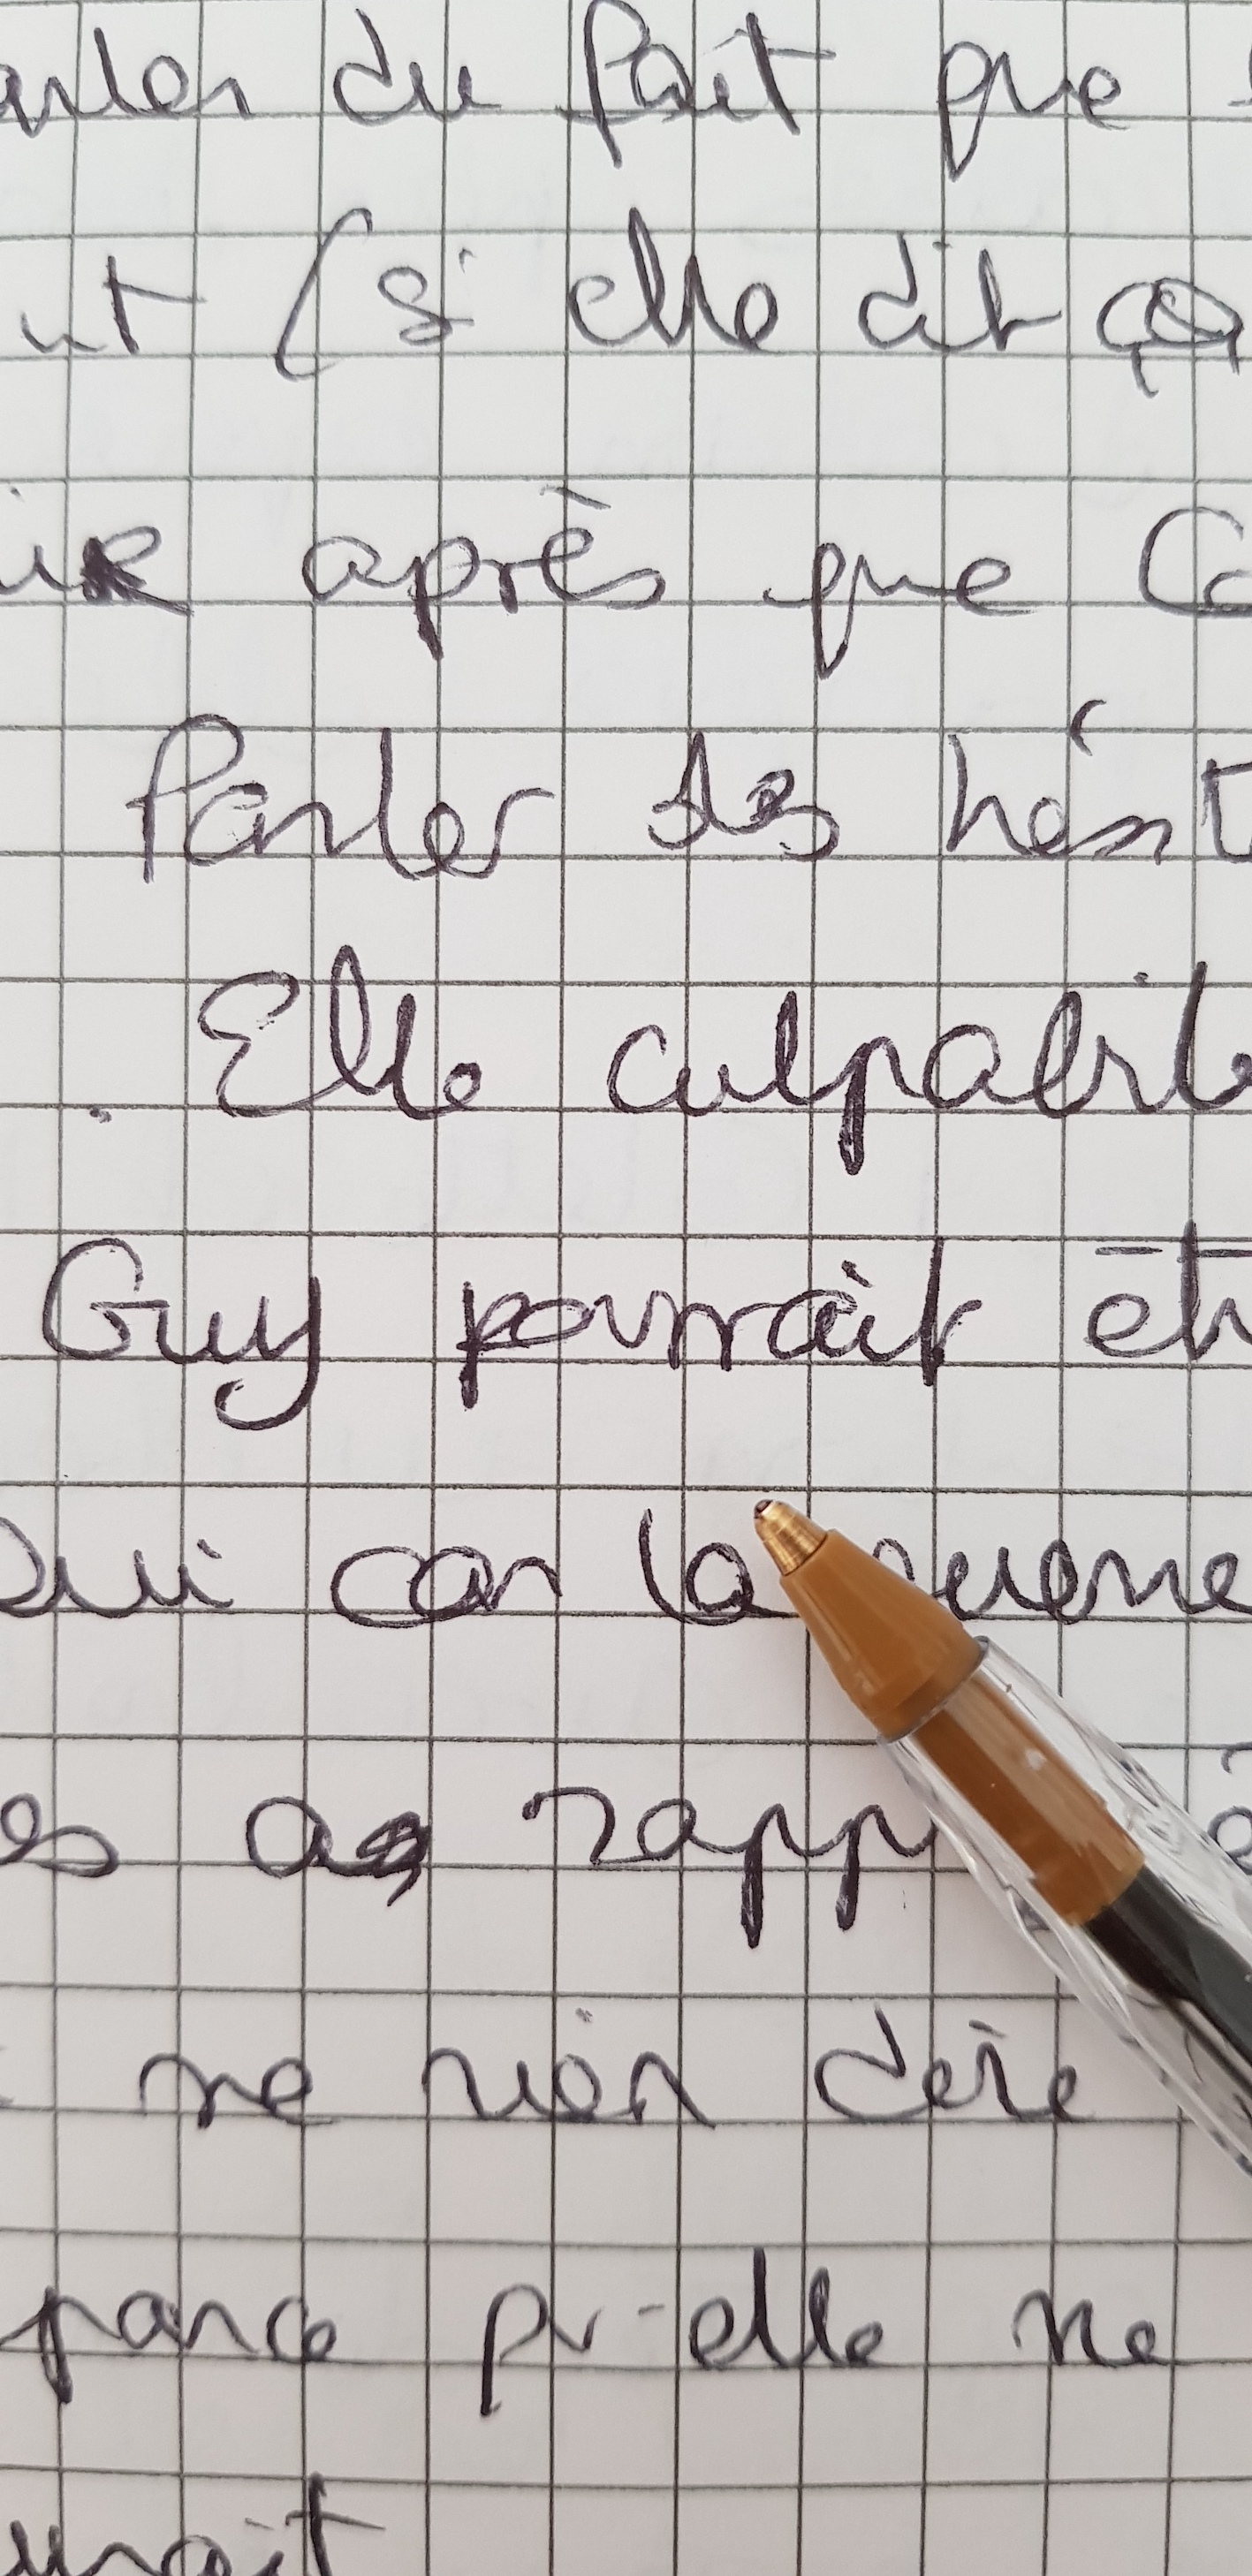 arler du fait que
ut (si elle dit ça
après que Co
Parler des hésit
. Elle culpabile
Guy pourrait êt
Oui car la même
es a rapp
ne rien dire
parce qu-elle ne
urait